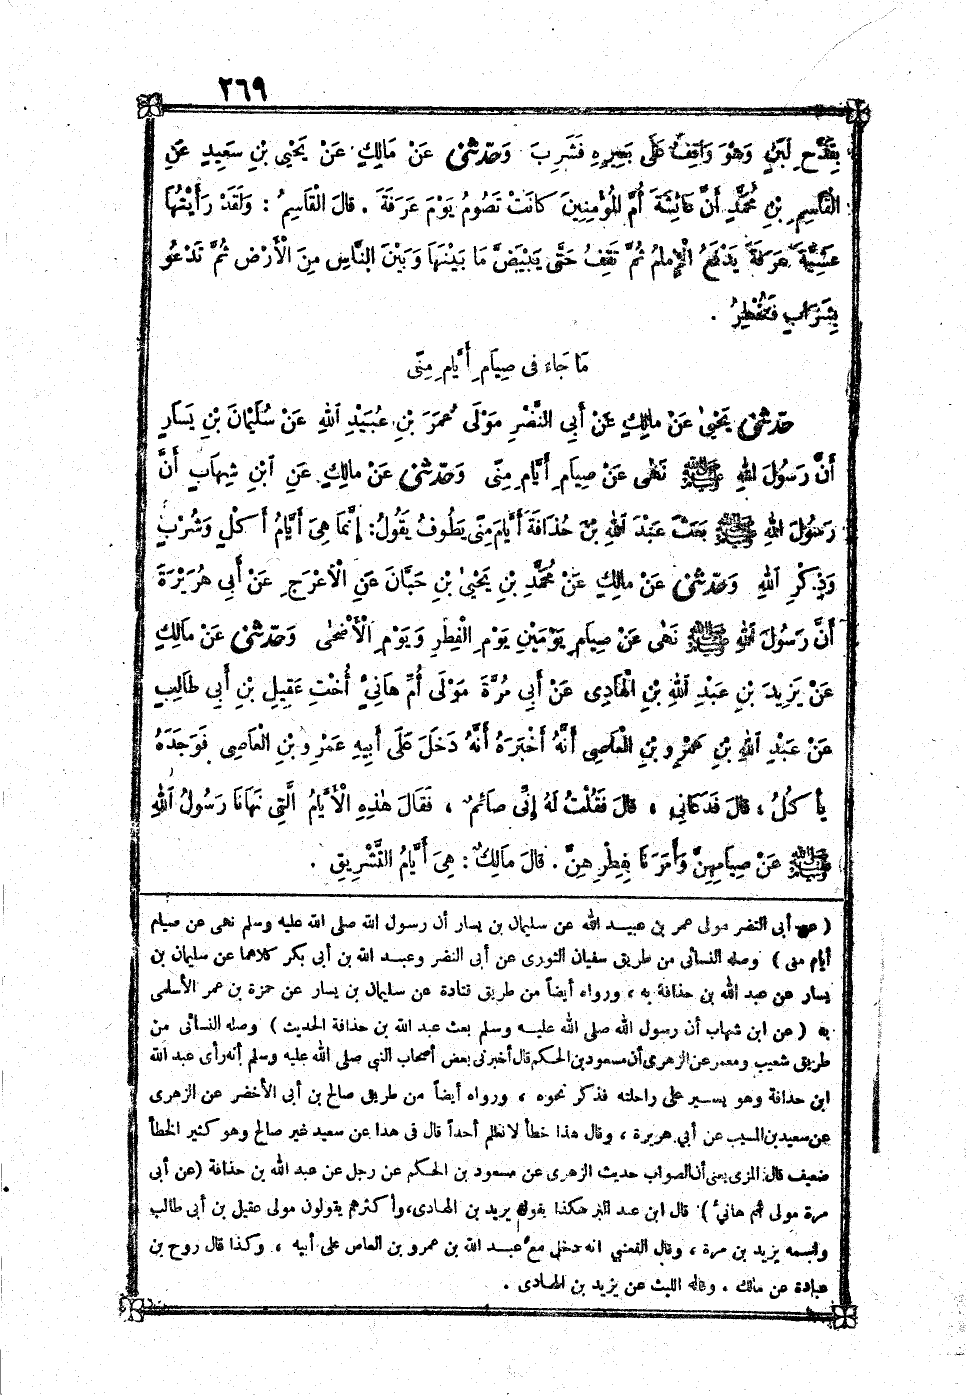 ٢٦٩
بِقَدَحِ لَبَنٍ وَهُوَ وَاقِفٌ عَلَى بَعِيرِهِ فَشَرِبَ وَحَدَّثَنِي عَنْ مَالِكٍ عَنْ يَحْيَى بْنِ سَعِيدٍ عَنِ
الْقَاسِمِ بْنِ مُحَمَّدٍ أَنَّ عَائِشَةَ أُمَّ الْمُؤْمِنِينَ كَانَتْ تَصُومُ يَوْمَ عَرَفَةَ . قَالَ الْقَاسِمُ : وَلَقَدْ رَأَيْتُهَا
عَشِيَّةَ عَرَفَةَ يَدْفَعُ الْإِمَامُ ثُمَّ تَقِفُ حَتَّى يَبْيَضَّ مَا بَيْنَهَا وَبَيْنَ النَّاسِ مِنَ الْأَرْضِ ثُمَّ تَدْعُو
بِشَرَابٍ فَتُفْطِرُ .
مَا جَاءَ فِي صِيَامِ أَيَّامِ مِنًى
حَدَّثَنِي يَحْيَى عَنْ مَالِكٍ عَنْ أَبِي النَّضْرِ مَوْلَى عُمَرَ بْنِ عُبَيْدِ اللهِ عَنْ سُلَيْمَانَ بْنِ يَسَارٍ
أَنَّ رَسُولَ اللهِ ﷺ نَهَى عَنْ صِيَامِ أَيَّامِ مِنًى وَحَدَّثَنِي عَنْ مَالِكٍ عَنِ ابْنِ شِهَابٍ أَنَّ
رَسُولَ اللهِ ﷺ بَعَثَ عَبْدَ اللهِ بْنَ حُذَافَةَ أَيَّامَ مِنًى يَطُوفُ يَقُولُ : إِنَّمَا هِيَ أَيَّامُ أَكْلٍ وَشُرْبٍ
وَذِكْرِ اللهِ وَحَدَّثَنِي عَنْ مَالِكٍ عَنْ مُحَمَّدِ بْنِ يَحْيَى بْنِ حَبَّانَ عَنِ الْأَعْرَجِ عَنْ أَبِي هُرَيْرَةَ
أَنَّ رَسُولَ اللهِ ﷺ نَهَى عَنْ صِيَامِ يَوْمَيْنِ يَوْمِ الْفِطْرِ وَيَوْمِ الْأَضْحَى وَحَدَّثَنِي عَنْ مَالِكٍ
عَنْ يَزِيدَ بْنِ عَبْدِ اللهِ بْنِ الْهَادِي عَنْ أَبِي مُرَّةَ مَوْلَى أُمِّ هَانِئٍ أُخْتِ عَقِيلِ بْنِ أَبِي طَالِبٍ
عَنْ عَبْدِ اللهِ بْنِ عَمْرِو بْنِ الْعَاصِي أَنَّهُ أَخْبَرَهُ أَنَّهُ دَخَلَ عَلَى أَبِيهِ عَمْرِو بْنِ الْعَاصِي فَوَجَدَهُ
يَأْكُلُ ، قَالَ فَدَعَانِي ، قَالَ فَقُلْتُ لَهُ إِنِّي صَائِمٌ ، فَقَالَ هٰذِهِ الْأَيَّامُ الَّتِي نَهَانَا رَسُولُ اللهِ
ﷺ عَنْ صِيَامِهِنَّ وَأَمَرَنَا بِفِطْرِهِنَّ . قَالَ مَالِكٌ : هِيَ أَيَّامُ التَّشْرِيقِ .
( عن أبى النضر مولى عمر بن عبيد الله عن سليمان بن يسار أن رسول الله صلى الله عليه وسلم نهى عن صيام
أيام منى ) وصله النسائى من طريق سفيان الثورى عن أبى النضر وعبد الله بن أبى بكر كلاهما عن سليمان بن
يسار عن عبد الله بن حذافة به ، ورواه أيضاً من طريق قتادة عن سليمان بن يسار عن حمزة بن عمر الأسلمى
به ( عن ابن شهاب أن رسول الله صلى الله عليه وسلم بعث عبد الله بن حذافة الحديث ) وصله النسائى من
طريق شعيب ومعمر عن الزهرى أن مسعود بن الحكم قال أخبرنى بعض أصحاب النبي صلى الله عليه وسلم أنه رأى عبد الله
ابن حذافة وهو يسير على راحلته فذكر نحوه ، ورواه أيضاً من طريق صالح بن أبى الأخضر عن الزهرى
عن سعيد بن المسيب عن أبي هريرة ، وقال هذا خطأ لا نعلم أحداً قال فى هذا عن سعيد غير صالح وهو كثير الخطأ
ضعيف قال المزى يعنى أن الصواب حديث الزهرى عن مسعود بن الحكم عن رجل عن عبد الله بن حذافة (عن أبى
مرة مولى أم هانئ ) قال ابن عبد البر هكذا يقول يزيد بن الهادى، وأكثرهم يقولون مولى عقيل بن أبى طالب
واسمه يزيد بن مرة ، وقال القعنبي انه دخل مع عبد الله بن عمرو بن العاص على أبيه ، وكذا قال روح بن
عبادة عن مالك . وقاله الليث عن يزيد بن الهادى .